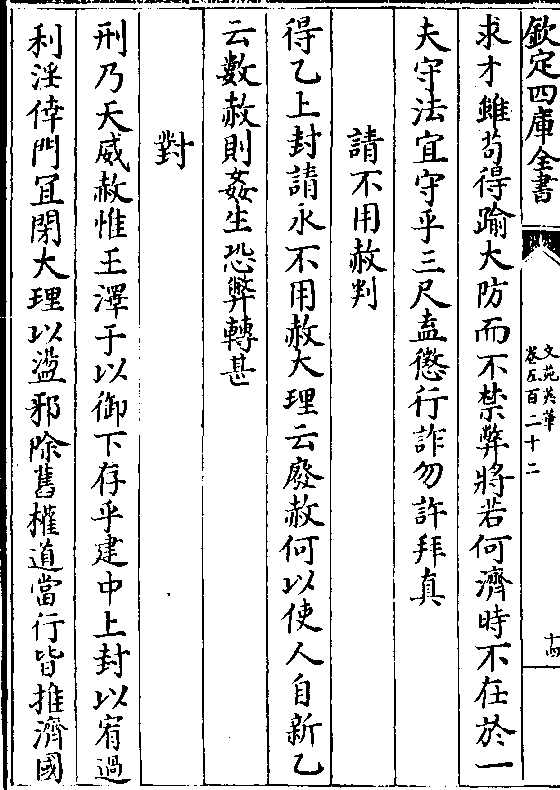 欽定四庫全書
文苑英華
卷五百二十二
十四
求才雖苟得踰大防而不禁弊將若何濟時不在於一
夫守法宜守乎三尺盍懲行詐勿許拜真
請不用赦判
得乙上封請永不用赦大理云廢赦何以使人自新乙
云數赦則姦生恐弊轉甚
對
刑乃天威赦惟王澤于以御下存乎建中上封以宥過
利淫倖門宜閉大理以盪邪除舊權道當行皆推濟國